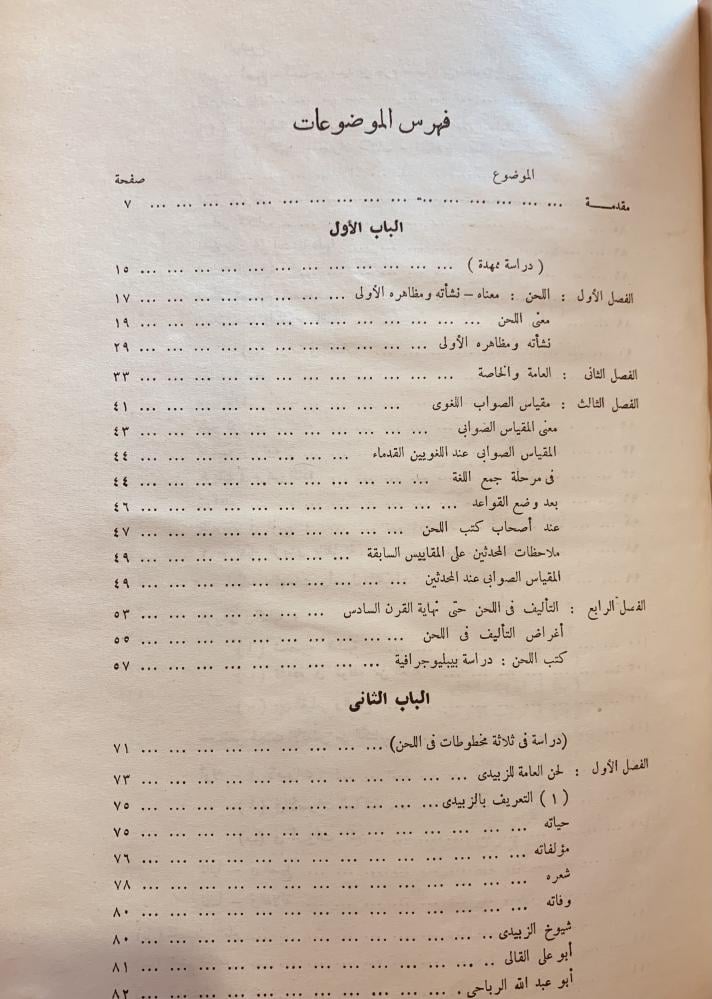 فهرس الموضوعات
الموضوع صفحة
مقدمـــة ... ... ... ... ... ... ... ... ... ... ... ... ... ... ... ٧
الباب الأول
( دراسة ممهدة ) ... ... ... ... ... ... ... ... ... ... ... ... ١٥
الفصل الأول : اللحن : معناه – نشأته ومظاهره الأولى ... ... ... ... ... ... ... ... ١٧
معنى اللحن ... ... ... ... ... ... ... ... ... ... ... ... ... ١٩
نشأته ومظاهره الأولى ... ... ... ... ... ... ... ... ... ... ... ٢٩
الفصل الثانى : العامة والخاصة ... ... ... ... ... ... ... ... ... ... ... ... ... ٣٣
الفصل الثالث : مقياس الصواب اللغوى ... ... ... ... ... ... ... ... ... ... ٤١
معنى المقياس الصوابى ... ... ... ... ... ... ... ... ... ... ... ٤٣
المقياس الصوابى عند اللغويين القدماء ... ... ... ... ... ... ... ... ... ٤٤
فى مرحلة جمع اللغة ... ... ... ... ... ... ... ... ... ... ... ٤٤
بعد وضع القواعد ... ... ... ... ... ... ... ... ... ... ... ... ٤٦
عند أصحاب كتب اللحن ... ... ... ... ... ... ... ... ... ... ... ٤٧
ملاحظات المحدثين على المقاييس السابقة ... ... ... ... ... ... ... ... ٤٩
المقياس الصوابى عند المحدثين ... ... ... ... ... ... ... ... ... ... ٤٩
الفصل الرابع : التأليف فى اللحن حتى نهاية القرن السادس ... ... ... ... ... ... ... ٥٣
أغراض التأليف فى اللحن ... ... ... ... ... ... ... ... ... ... ٥٥
كتب اللحن : دراسة بيبليوجرافية ... ... ... ... ... ... ... ... ... ٥٧
الباب الثانى
(دراسة فى ثلاثة مخطوطات فى اللحن) ... ... ... ... ... ... ... ... ... ٧١
الفصل الأول : لحن العامة للزبيدى ... ... ... ... ... ... ... ... ... ... ... ... ٧٣
( ١ ) التعريف بالزبيدى ... ... ... ... ... ... ... ... ... ... ... ٧٥
حياته ... ... ... ... ... ... ... ... ... ... ... ... ... ... ٧٥
مؤلفاته ... ... ... ... ... ... ... ... ... ... ... ... ... ... ٧٦
شعره ... ... ... ... ... ... ... ... ... ... ... ... ... ... ٧٨
وفاته ... ... ... ... ... ... ... ... ... ... ... ... ... ... ٨٠
شيوخ الزبيدى ... ... ... ... ... ... ... ... ... ... ... ... ٨٠
أبو على القالى ... ... ... ... ... ... ... ... ... ... ... ... ٨١
أبو عبد الله الرباحى ... ... ... ... ... ... ... ... ... ... ... ٨٢